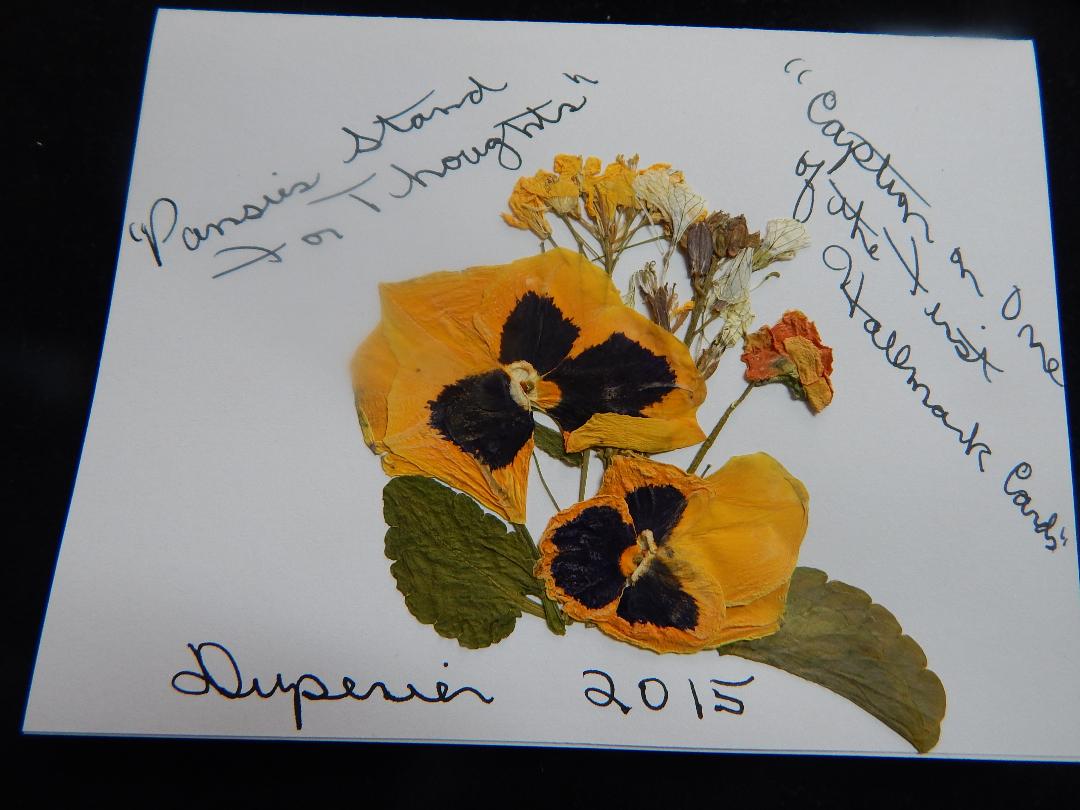 "Pansies Stand
For Thoughts"
"Caption on One
of the First
Hallmark Cards"
Duperier 2015